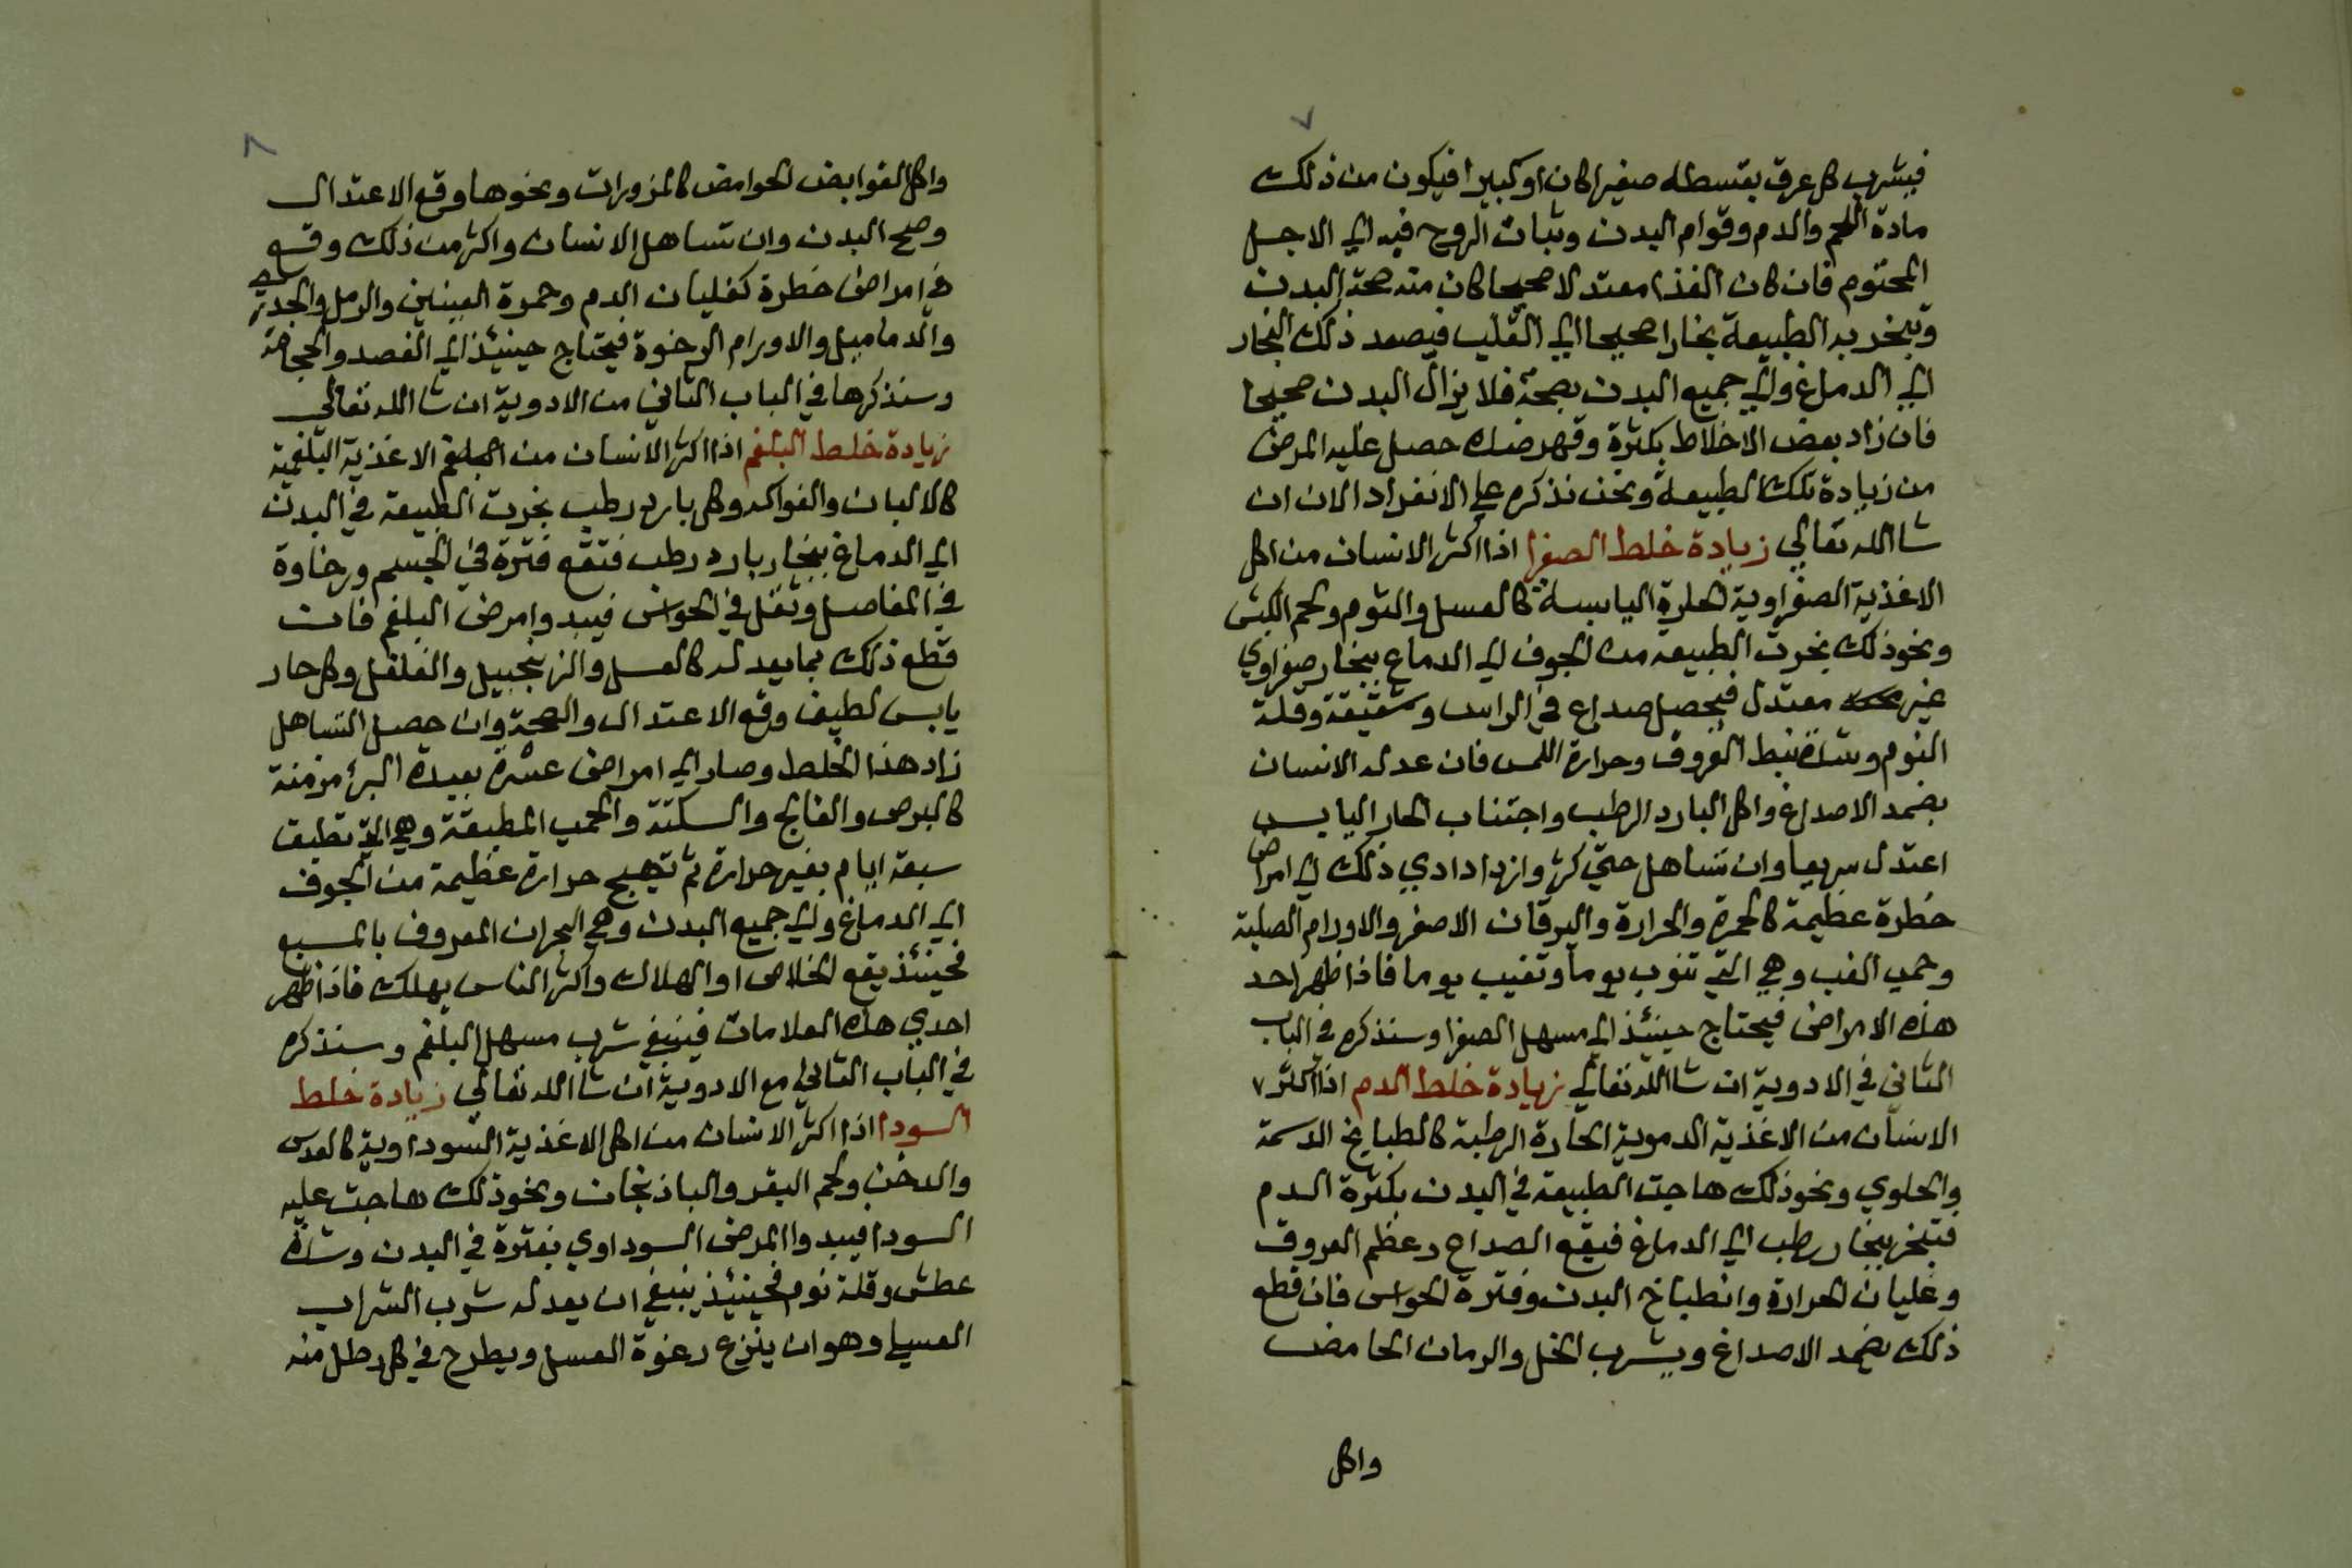 ٧
فيشرب كل عرق بقسطه صغيرا كان او كبيرا فيكون من ذلك
مادة اللحم والدم وقوام البدن وثبات الروح فيه الي الاجل
المحتوم فان كان الغذا معتدلا صحيحا كان منه صحة البدن
وتبخر به الطبيعة بخارا صحيحا الي القلب فيصعد ذلك البخار
الي الدماغ والي جميع البدن بصحة فلا يزال البدن صحيحا
فان زاد بعض الاخلاط بكثرة وقهر ضده حصل عليه المرض
من زيادة تلك الطبيعة ونحن نذكره علي الانفراد الان ان
شا الله تعالي زيادة خلط الصفرا اذا اكثر الانسان من اكل
الاغذية الصفراوية الحارة اليابسة كالعسل والثوم ولحم الكبش
ونحو ذلك بخرت الطبيعه من الجوف الي الدماغ ببخار صفراوي
غير معتدل فيحصل صداع في الراس وشقيقة وقلة
النوم وشدة نبط العروق وحرارة اللمس فان عدله الانسان
بضمد الاصداغ واكل البارد الرطب واجتناب الحار اليابس
اعتدل سريعا وان تساهل حتي كثر وازداد ادي ذلك الي امراض
خطرة عظيمة كالحمرة والحرارة واليرقان الاصفر والاورام الصلبة
وحمي الغب وهي التي تنوب يوما وتغيب يوما فاذا ظهر احد
هذه الامراض فيحتاج حينئذ الي مسهل الصفرا وسنذكره في الباب
الثاني في الادوية ان شا الله تعالي زيادة خلط الدم اذا اكثر ٧
الانسان من الاغذية الدموية الحارة الرطبة كالطبايخ الدسمة
والحلوي ونحو ذلك هاجت الطبيعه في البدن بكثرة الدم
فتبخر ببخار رطب الي الدماغ فيقع الصداع وعظم العروق
وغليان الحرارة وانطباخ البدن وفترة الحواس فان قطع
ذلك بضمد الاصداغ ويشرب الخل والرمان الحامض
واكل
٨
واكل القوابض الحوامض كالمزورات ونحوها وقع الاعتدال
وصح البدن وان تساهل الانسان واكثر من ذلك وقع
في امراض خطرة كغليان الدم وحمرة العينين والرمل والجدري
والدماميل والاورام الرخوة فيحتاج حينئذ الي الفصد والحجامة
وسنذكرها في الباب الثاني من الادوية ان شا الله تعالي
زيادة خلط البلغم اذا اكثر الانسان من الاغذية البلغمية
كالالبان والفواكه وكل بارد رطب بخرت الطبيعه في البدن
الي الدماغ ببخار بارد رطب فتقع فترة في الجسم ورخاوة
في المفاصل وثقل في الحواس فيبدوا مرض البلغم فان
قطع ذلك بما يعدله كالعسل والزنجبيل والفلفل وكل حار
يابس لطيف وقع الاعتدال والصحة وان حصل التساهل
زاد هذا الخلط وصار الي امراض عسرة بعيدة البرأ مزمنة
كالبرص والفالج والسكتة والحمي المطبقة وهي التي تطبق
سبعة ايام بغير حرارة ثم تهيج حرارة عظيمة من الجوف
الي الدماغ والي جميع البدن وهي البحران المعروف بالمسبع
فحينئذ يقع الخلاص او الهلاك واكثر الناس يهلك فاذا ظهر
احدي هذه العلامات فينبغي شرب مسهل البلغم وسنذكره
في الباب الثاني مع الادوية ان شا الله تعالي زيادة خلط
السودا اذا اكثر الانسان من اكل الاغذية السوداوية كالعدس
والدخن ولحم البقر والباذنجان ونحو ذلك هاجت عليه
السودا فيبدوا المرض السوداوي بفترة في البدن وشدة
عطش وقلة نوم فحينئذ ينبغي ان يعدله شرب الشراب
العسلي وهو ان ينزع رغوة العسل ويطرح في كل رطل منه